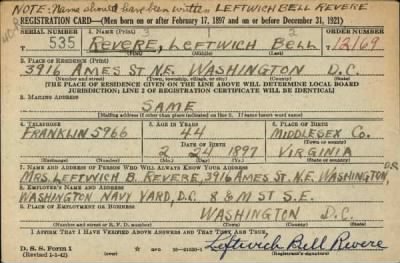 NOTE: Name should have been written LEFTWICH BELL REVERE
REGISTRATION CARD—(Men born on or after February 17, 1897 and on or before December 31, 1921)
SERIAL NUMBER 1. NAME (Print) ORDER NUMBER
535 REVERE, LEFTWICH BELL 12169
(First) (Middle) (Last)
2. PLACE OF RESIDENCE (Print)
3916 AMES ST N.E. WASHINGTON D.C.
(Number and street) (Town, township, village, or city) (County) (State)
[THE PLACE OF RESIDENCE GIVEN ON THE LINE ABOVE WILL DETERMINE LOCAL BOARD
JURISDICTION; LINE 2 OF REGISTRATION CERTIFICATE WILL BE IDENTICAL]
3. MAILING ADDRESS
SAME
[Mailing address if other than place indicated on line 2. If same insert word same]
4. TELEPHONE 5. AGE IN YEARS 6. PLACE OF BIRTH
FRANKLIN 5966 44 MIDDLESEX CO.
DATE OF BIRTH (Town or county)
2 24 1897 VIRGINIA
(Exchange) (Number) (Mo.) (Day) (Yr.) (State or country)
7. NAME AND ADDRESS OF PERSON WHO WILL ALWAYS KNOW YOUR ADDRESS
MRS. LEFTWICH B. REVERE, 3916 AMES ST. N.E. WASHINGTON, D.C.
8. EMPLOYER'S NAME AND ADDRESS
WASHINGTON NAVY YARD, D.C. 8 & M ST S.E.
9. PLACE OF EMPLOYMENT OR BUSINESS
WASHINGTON D.C.
(Number and street or R. F. D. number) (Town) (County) (State)
I AFFIRM THAT I HAVE VERIFIED ABOVE ANSWERS AND THAT THEY ARE TRUE.
D. S. S. Form 1
(Revised 1-1-42) GPO 16—21630-1 Leftwich Bell Revere
(Registrant's signature)